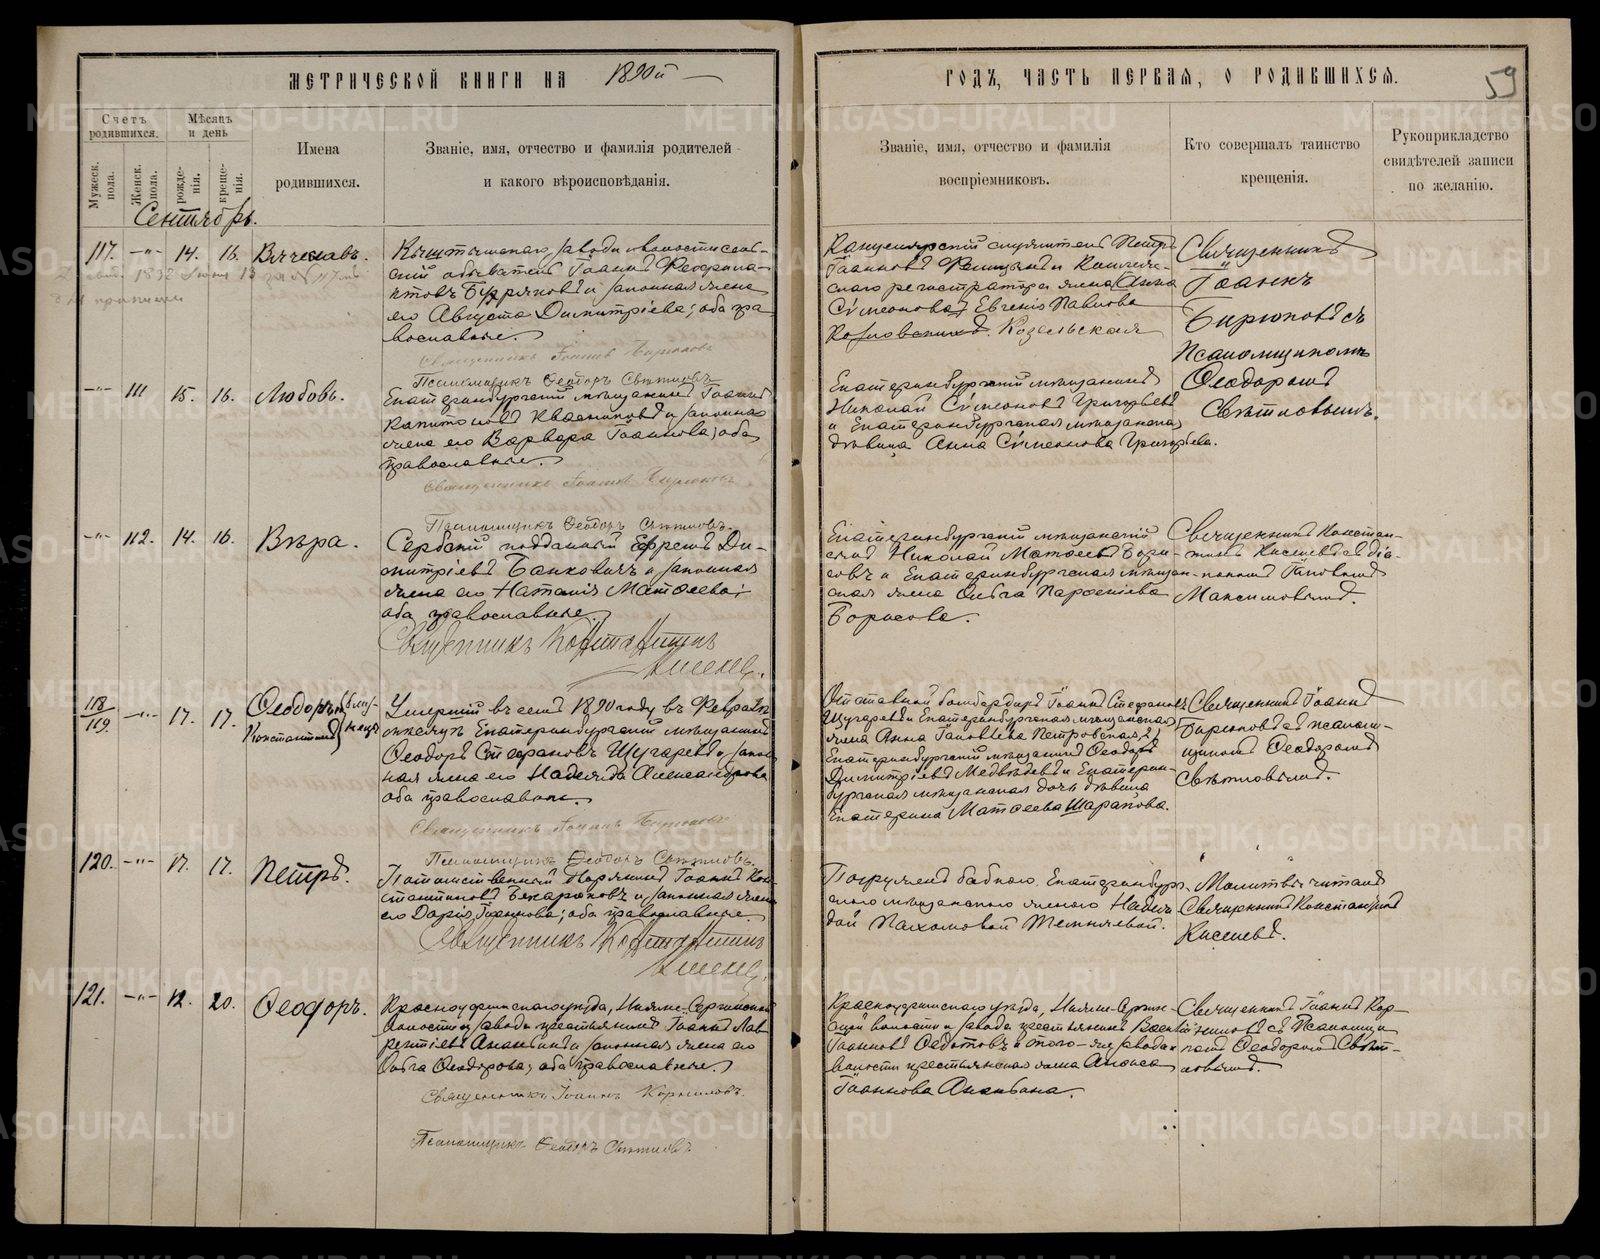 МЕТРИЧЕСКОЙ КНИГИ НА 1890й
ГОДЪ, ЧАСТЬ ПЕРВАЯ, О РОДИВШИХСЯ.
59
Счетъ родившихся.
Мѣсяцъ и день
Мужеск. пола.
Женск. пола.
рожде-нія.
креще-нія.
Имена
родившихся.
Званіе, имя, отчество и фамилія родителей
и какого вѣроисповѣданія.
Званіе, имя, отчество и фамилія
воспріемниковъ.
Кто совершалъ таинство
крещенія.
Рукоприкладство
свидѣтелей записи
по желанію.
Сентябрь.
117. —"— 14. 16. Вячеславъ.
Кыштымскаго завода и волости сель-
скій обыватель Іоаннъ Феофила-
ктовъ и законная жена
его Августа Димитріева; оба пра-
вославные.
Священникъ Іоаннъ Бирюковъ
Псаломщикъ Ѳеодоръ Свѣтловъ
Канцелярскій служитель Петръ
Іоанновъ и Коллеж-
скаго регистратора жена Анна
Сѵмеонова Евгенія Павлова
Козельская
Священникъ
Іоаннъ
Бирюковъ съ
Псаломщикомъ
Ѳеодоромъ
Свѣтловымъ.
—"— 111 15. 16. Любовь.
Екатеринбургскій мѣщанинъ Іоаннъ
Капитоновъ Квасниковъ и законная
жена его Варвара Іоаннова; оба
православные.
Священникъ Іоаннъ Бирюковъ
Псаломщикъ Ѳеодоръ Свѣтловъ.
Екатеринбургскій мѣщанинъ
Николай Сѵмеоновъ Григорьевъ
и Екатеринбургская мѣщанская
дѣвица Анна Сѵмеонова Григорьева.
—"— 112. 14. 16. Вѣра.
Сербскій подданный Ефремъ Ди-
митріевъ Банковичъ и законная
жена его Наталія Матѳеева;
оба православные.
Священникъ Константинъ
Киселевъ.
Екатеринбургскій мѣщанскій
сынъ Николай Матѳеевъ Бори-
совъ и Екатеринбургская мѣщан-
ская жена Ольга Парѳеніева
Борисова.
Священникъ Констан-
тинъ Киселевъ съ діа-
кономъ
Максимовымъ.
118/119. —"— 17. 17. Ѳеодоръ и Константинъ близнецы
Умершій въ семъ 1890 году въ Февралѣ
мѣсяцѣ Екатеринбургскій мѣщанинъ
Ѳеодоръ Стефановъ Щугаревъ и закон-
ная жена его Надежда Александрова
оба православные.
Священникъ Іоаннъ Бирюковъ
Псаломщикъ Ѳеодоръ Свѣтловъ.
Отставной бомбардиръ Іоаннъ Стефановъ
Щугаревъ и Екатеринбургская мѣщанская
жена Анна Іаковлева Петровская 2)
Екатеринбургскій мѣщанинъ Ѳеодоръ
Димитріевъ Медвѣдевъ и Екатерин-
бургская мѣщанская дочь дѣвица
Екатерина Матѳеева Шарапова.
Священникъ Іоаннъ
Бирюковъ съ псалом-
щикомъ Ѳеодоромъ
Свѣтловымъ.
120. —"— 17. 17. Петръ.
Потомственный Дворянинъ Іоаннъ Кон-
стантиновъ Бекарюковъ и законная жена
его Дарія Іоаннова; оба православные.
Священникъ Константинъ
Киселевъ.
Погруженъ бабкою Екатеринбург-
скою мѣщанскою женою Надеж-
дой Пахомовой Темничевой.
Молитвы читалъ
Священникъ Константинъ
Киселевъ.
121. —"— 12. 20. Ѳеодоръ.
Красноуфимскаго уѣзда, Нижне-Сергинской
волости и завода крестьянинъ Іоаннъ Лав-
рентіевъ Ананьинъ и законная жена его
Ольга Ѳеодорова; оба православные.
Священникъ Іоаннъ Корниловъ.
Псаломщикъ Ѳеодоръ Свѣтловъ
Красноуфимскаго уѣзда, Нижне-Сергин-
ской волости и завода крестьянинъ Василій
Іоанновъ Ѳедотовъ и того-же завода и
волости крестьянская жена Анѳиса
Іоаннова Ананьина.
Священникъ Іоаннъ Кор-
ниловъ съ Псаломщи-
комъ Ѳеодоромъ Свѣт-
ловымъ.
METRIKI.GASO-URAL.RU